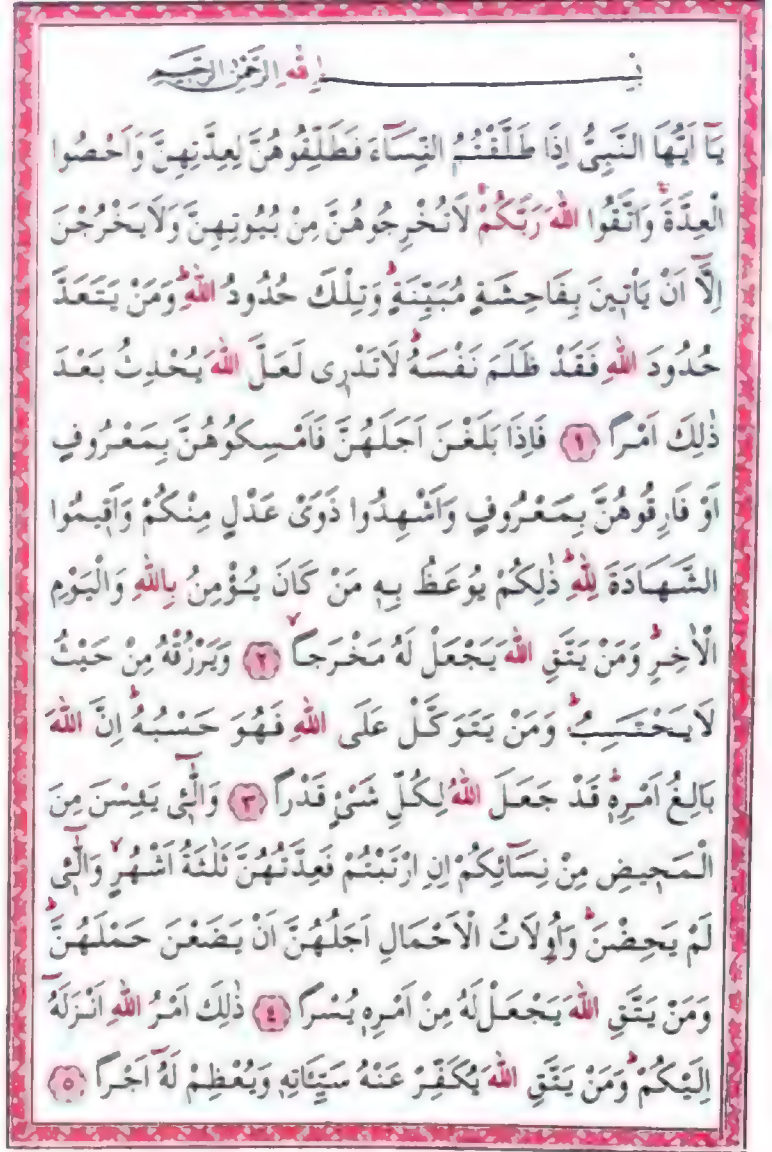 بِسْمِ اللهِ الرَّحْمٰنِ الرَّحِيمِ
يَٓا اَيُّهَا النَّبِيُّ اِذَا طَلَّقْتُمُ النِّسَٓاءَ فَطَلِّقُوهُنَّ لِعِدَّتِهِنَّ وَاَحْصُوا
الْعِدَّةَۚ وَاتَّقُوا اللهَ رَبَّكُمْۚ لَا تُخْرِجُوهُنَّ مِنْ بُيُوتِهِنَّ وَلَا يَخْرُجْنَ
اِلَّٓا اَنْ يَأْت۪ينَ بِفَاحِشَةٍ مُبَيِّنَةٍۜ وَتِلْكَ حُدُودُ اللهِۜ وَمَنْ يَتَعَدَّ
حُدُودَ اللهِ فَقَدْ ظَلَمَ نَفْسَهُۜ لَا تَدْر۪ى لَعَلَّ اللهَ يُحْدِثُ بَعْدَ
ذٰلِكَ اَمْراً ﴿١﴾ فَاِذَا بَلَغْنَ اَجَلَهُنَّ فَاَمْسِكُوهُنَّ بِمَعْرُوفٍ
اَوْ فَارِقُوهُنَّ بِمَعْرُوفٍ وَاَشْهِدُوا ذَوَىْ عَدْلٍ مِنْكُمْ وَاَق۪يمُوا
الشَّهَادَةَ لِلّٰهِۜ ذٰلِكُمْ يُوعَظُ بِه۪ مَنْ كَانَ يُؤْمِنُ بِاللهِ وَالْيَوْمِ
الْاٰخِرِۜ وَمَنْ يَتَّقِ اللهَ يَجْعَلْ لَهُ مَخْرَجاًۙ ﴿٢﴾ وَيَرْزُقْهُ مِنْ حَيْثُ
لَا يَحْتَسِبُۜ وَمَنْ يَتَوَكَّلْ عَلَى اللهِ فَهُوَ حَسْبُهُۜ اِنَّ اللهَ
بَالِغُ اَمْرِه۪ۜ قَدْ جَعَلَ اللهُ لِكُلِّ شَىْءٍ قَدْراً ﴿٣﴾ وَالّٰٓـ۪ٔى يَئِسْنَ مِنَ
الْمَح۪يضِ مِنْ نِسَٓائِكُمْ اِنِ ارْتَبْتُمْ فَعِدَّتُهُنَّ ثَلٰثَةُ اَشْهُرٍۙ وَالّٰٓـ۪ٔى
لَمْ يَحِضْنَۜ وَاُو۬لَاتُ الْاَحْمَالِ اَجَلُهُنَّ اَنْ يَضَعْنَ حَمْلَهُنَّۜ
وَمَنْ يَتَّقِ اللهَ يَجْعَلْ لَهُ مِنْ اَمْرِه۪ يُسْراً ﴿٤﴾ ذٰلِكَ اَمْرُ اللهِ اَنْزَلَهُٓ
اِلَيْكُمْۜ وَمَنْ يَتَّقِ اللهَ يُكَفِّرْ عَنْهُ سَيِّـَٔاتِه۪ وَيُعْظِمْ لَهُٓ اَجْراً ﴿٥﴾